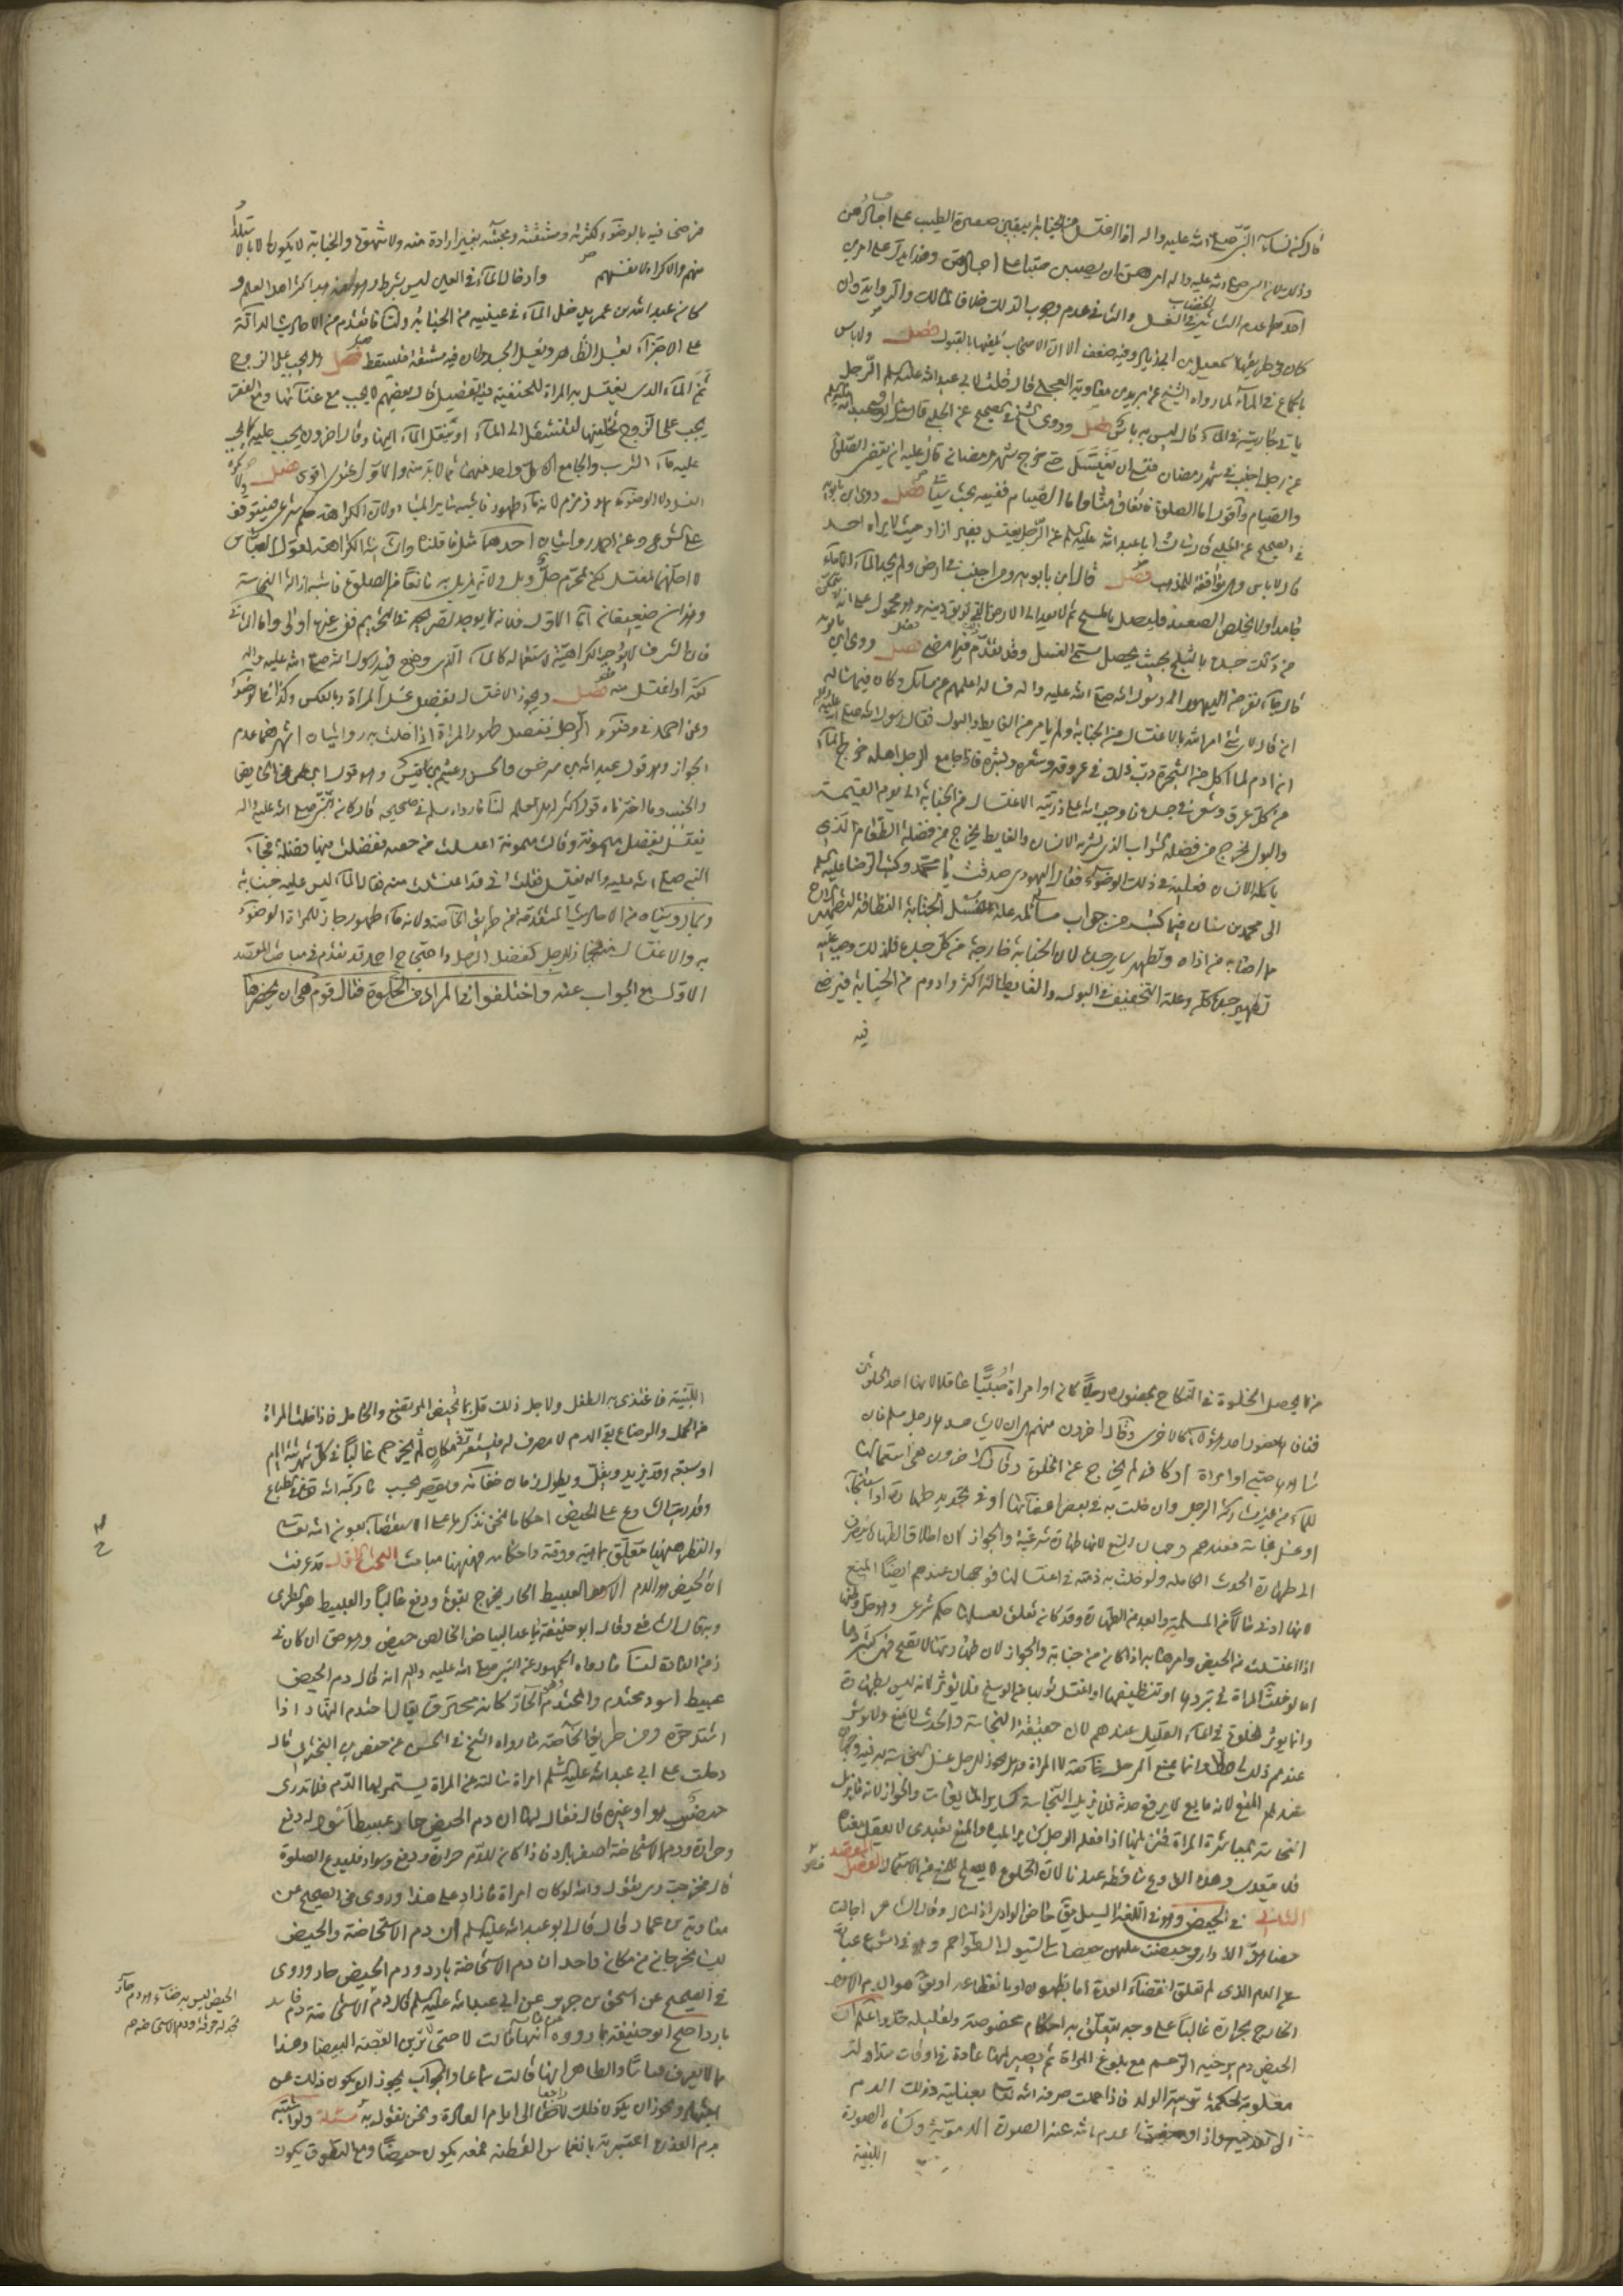 قال كن نساء النبي صلى الله عليه واله اذا اغتسلن من الجنابة يبقين صفرة الطيب على اجسادهن
وذلك لان النبي صلى الله عليه واله امرهن ان يصببن الماء صبا على اجسادهن
احدكما عدم التأثير في الغسل والثاني عدم وجوب الدلك خلافا لمالك
كان في طريقها اسمعيل بن ابي زياد وفيه ضعف الا ان الاصحاب تلقوها بالقبول فصل ولا باس
بالجماع في الماء لما رواه الشيخ عن بريد بن معاوية العجلي قال قلت لابي عبد الله عليه السلم الرجل
ياتي جاريته في الماء قال ليس به باس فصل وروى الشيخ في الصحيح عن الحلبي قال سئل ابو عبد الله عليه السلم
عن رجل اجنب في شهر رمضان فنسي ان يغتسل حتى خرج شهر رمضان قال عليه ان يقضي الصلوة
والصيام واقول اما الصلوة فاتفاق منا واما الصيام ففيه بحث سياتي فصل روى ابن بابويه
في الصحيح عن الحلبي قال سالت ابا عبد الله عليه السلم عن الرجل يغتسل بغير ازار حيث لا يراه احد
قال لا باس وهي موافقة للمذهب فصل قال ابن بابويه ومن اجنب في ارض ولم يجد الماء الا ماء
جامدا ولا يخلص الى الصعيد فليصل بالمسح ثم لا يعد الى الارض التي توبق دينه وهو محمول على انه لا يتمكن
من دلك جسده بالثلج بحيث يحصل مسمى الغسل وقد تقدم فيما مضى فصل روى ابن بابويه
قال جاء نفر من اليهود الى رسول الله صلى الله عليه واله فساله اعلمهم عن مسائل وكان فيما ساله
ان قال لاي شيء امر الله بالاغتسال من الجنابة ولم يامر من الغايط والبول فقال رسول الله صلى الله عليه واله
ان ادم لما اكل من الشجرة دب ذلك في عروقه وشعره وبشره فاذا جامع الرجل اهله خرج الماء
من كل عرق وشعرة في جسده فاوجب الله على ذريته الاغتسال من الجنابة الى يوم القيمة
والبول يخرج من فضلة الشراب الذي يشربه الانسان والغايط يخرج من فضلة الطعام الذي
ياكله الانسان فعليه في ذلك الوضوء فقال اليهودي صدقت يا محمد وكتب الرضا عليه السلم
الى محمد بن سنان فيما كتب من جواب مسائله علة غسل الجنابة النظافة لتطهير الانسان
مما اصابه من اذاه وتطهير ساير جسده لان الجنابة خارجة من كل جسده فلذلك وجب عليه
تطهير جسده كله وعلة التخفيف في البول والغايط انه اكثر وادوم من الجنابة فرضي
فيه
فرضي فيه بالوضوء لكثرته ومشقته ومجيئه بغير ارادة منه ولا شهوة والجنابة لا يكون الا بالاستلذاذ
منهم والاكراه لانفسهم وادخال الماء في العين ليس بشرط وهو مذهب اكثر اهل العلم و
كان عبد الله بن عمر يدخل الماء في عينيه من الجنابة ولنا ما تقدم من الاحاديث الدالة
على الاجتزاء بغسل الظاهر وبغسل الجسد ولان فيه مشقة فيسقط فصل هل يجب على الزوج
ثمن الماء الذي يغتسل به المراة للحنفية فيه تفصيل قال بعضهم لا يجب مع غنائها ومع الفقر
يجب على الزوج تخليتها لتنتقل الى الماء او ينقل الماء اليها وقال اخرون يجب عليه كما يجب
عليه ماء الشرب والجامع ان كل واحد منهما مما لا بد منه والاول عندي اقوى فصل ولا يكره
الغسل ولا الوضوء بماء زمزم لانه ماء طهور فاشبه ساير المياه ولان الكراهة حكم شرعي فيتوقف
على الشرع وعن احمد روايتان احدهما مثل ما قلناه والثانية الكراهة لقول العباس
لا احلها لمغتسل لكن لمحرم حل وبل ولانه يزيل به مانعا من الصلوة فاشبه ازالة النجاسة
وهذان ضعيفان اما الاول فلانه لا يوجد تصريحه في التحريم ففي غيرها اولى واما الثاني
فان الشرف لا يوجب الكراهية لاستعماله كالماء الذي وضع فيه رسول الله صلى الله عليه واله
كفه او اغتسل منه فصل ويجوز الاغتسال بفضل غسل المراة وبالعكس وكذا في الوضوء
وعن احمد في وضوء الرجل بفضل طهور المراة اذا خلت به روايتان اشهرهما عدم
الجواز وهو قول عبد الله بن سرجس والحسن وغنيم بن قيس وهو قول ابن عمر في الحايض
والجنب وما اخترناه قول اكثر اهل العلم لنا ما رواه مسلم في صحيحه قال كان النبي صلى الله عليه واله
يغتسل بفضل ميمونة وقالت ميمونة اغتسلت من جفنة ففضلت فيها فضلة فجاء
النبي صلى الله عليه واله يغتسل فقلت اني قد اغتسلت منه فقال الماء ليس عليه جنابة
وبما رويناه من الاحاديث المتقدمة من طريق الخاصة ولانه ماء طهور جاز للمراة الوضوء
به والاغتسال منه فجاز للرجل كفضل الرجل واحتجاج احمد قد تقدم في مباحث المقصد
الاول مع الجواب عنه واختلفوا في المراد في الخلوة فقال قوم هي ان لا يحضرها
من لا يحصل الخلوة في النكاح بحضوره رجلا كان او امراة او صبيا عاقلا لانها احد الخلوتين
فنافاها حضور احد هؤلاء كالاخرى وقال اخرون منهم هي ان لا يشاهدها رجل مسلم فان
شاهدها صبي او امراة او كافر لم يخرج عن الخلوة وقال اخرون هي استعمالها
للماء من غير مشاركة الرجل وان خلت به في بعض اعضائها او في تجديد طهارة او استنجاء
او غسل نجاسة فعندهم وجهان المنع لانها طهارة شرعية والجواز لان اطلاق الطهارة ينصرف
الى طهارة الحدث الكاملة ولو خلت به ذمية في اغتسالها فوجهان عندهم ايضا المنع
لانها ادنى حالا من المسلمة وابعد من الطهارة وقد كان تعلق بغسلها حكم شرعي وهو حل وطئها
اذا اغتسلت من الحيض وامرها به اذا كان من جنابة والجواز لان طهارتها لا تصح فهي كتبردها
اما لو خلت المراة في تبردها او تنظيفها او لغسل ثوبها من الوسخ فلا يؤثر لانه ليس بطهارة
وانما يؤثر الخلوة في الماء القليل عندهم لان حقيقة النجاسة والحدث لا يمنع
عندهم ذلك وانما يمنع الرجل خاصة لا المراة وهل يجوز للرجل غسل النجاسة به فيه وجهان
عندهم المنع لانه مايع لا يرفع حدثه فلا يزيل النجاسة كساير المايعات والجواز لانه ماء يزيل
النجاسة بمباشرة المراة فيزيلها اذا فعله الرجل كساير المياه والمنع تعبدي لا يعقل معناه
فلا يتعدى وهذه الفروع ساقطة عندنا لان الخلوة لا يصلح للمنع من الاستعمال الفصل المقصد
الثاني في الحيض وهو في اللغة السيل يق حاض الوادي اذا سال وقال الشاعر اجالت
حصاهن الذواري وحيضت عليهن حيضات السيول الطواحم وهو في الشرع عبارة
عن الدم الذي له تعلق بانقضاء العدة اما بظهوره او بانقطاعه او يق هو الدم الاسود
الخارج بحرارة غالبا على وجه يتعلق به احكام مخصوصة ولقليله حد واعلم ان
الحيض دم يرخيه الرحم مع بلوغ المراة ثم يصير لها عادة في اوقات متداولة
معلومة لحكمة تربية الولد فاذا حملت صرفه الله تعالى بعنايته ذلك الدم
الى تغذيته واذا وضعت اعدم الله عنه الصورة الدموية وكساه الصورة
اللبنية
اللبنية فاغتذى به الطفل ولاجل ذلك قل ما تحيض المرضع والحامل فاذا خلت المراة
من الحمل والرضاع بقي الدم لا مصرف له فيستقر في مكان ثم يخرج غالبا في كل شهر ستة ايام
او سبعة وقد يزيد ويقل ويطول زمان خفائه ويقصر بحسب ما ركبه الله تعالى في الطباع
وقد رتب الشارع على الحيض احكاما نحن نذكرها على الاستقصاء بعون الله تعالى
والنظر ههنا متعلق بماهيته ووقته واحكامه فههنا مباحث البحث الاول قد عرفت
ان الحيض هو الدم الاسود العبيط الحار يخرج بقوة ودفع غالبا والعبيط هو الطري
وبه قال الشافعي وقال ابو حنيفة ما عدا البياض الخالص حيض وهو حق ان كان في
زمن العادة لنا ما رواه الجمهور عن النبي صلى الله عليه واله انه قال دم الحيض
عبيط اسود محتدم والمحتدم الحار كانه محترق يقال احتدم النهار اذا
اشتد حره ومن طريق الخاصة ما رواه الشيخ في الحسن عن حفص بن البختري قال
دخلت على ابي عبد الله عليه السلم امراة سالته عن المراة يستمر بها الدم فلا تدري
حيض هو او غيره قال فقال لها ان دم الحيض حار عبيط اسود له دفع
وحرارة ودم الاستحاضة اصفر بارد فاذا كان للدم حرارة ودفع وسواد فليدع الصلوة
قال فخرجت وهي تقول والله لو كان امراة ما زاد على هذا وروى في الصحيح عن
معاوية بن عمار قال قال ابو عبد الله عليه السلم ان دم الاستحاضة والحيض
ليس يخرجان من مكان واحد ان دم الاستحاضة بارد ودم الحيض حار وروى
في الصحيح عن اسحق بن جرير عن ابي عبد الله عليه السلم قال دم الاستحاضة دم فاسد
بارد احتج ابو حنيفة بما رووه عن عايشة انها قالت لا حتى ترين القصة البيضا وهذا
مما لا يعرف قياسا والظاهر انها قالت سماعا والجواب يجوز ان يكون ذلك عن
اجتهاد ويجوز ان يكون ذلك راجعا الى ايام العادة ونحن نقول به مسئلة ولو اشتبه
بدم العذرة اعتبر به بانغماس القطنة فمعه يكون حيضا ومع التطوق يكون
الحيض ليس به خفاء هو دم حار
تجد له حرقة ودم الاستحاضة دم